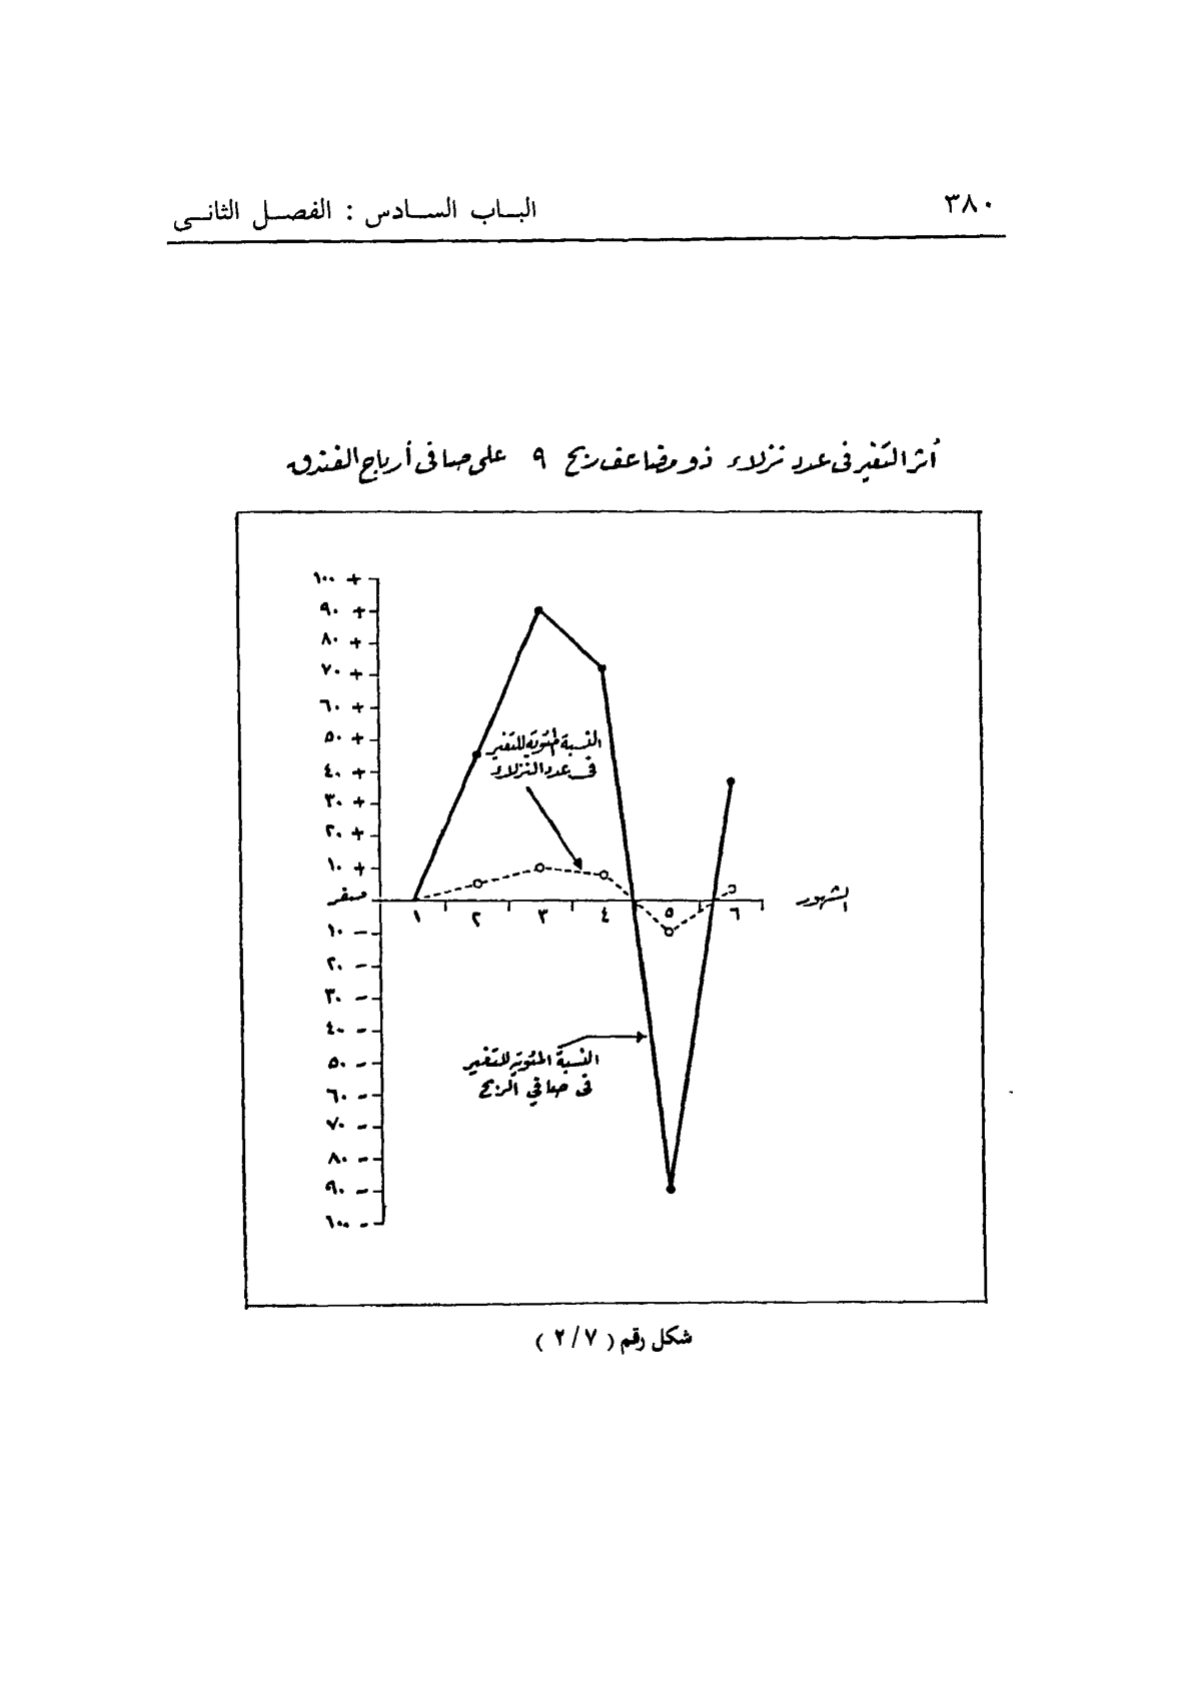 ٣٨٠
البـاب السـادس : الفصـل الثانـى
أثر التغير فى عدد نزلاء ذو مضاعف ربح ٩ على صافى أرباح الفندق
١٠٠ +
٩٠ +
٨٠ +
٧٠ +
٦٠ +
٥٠ +
٤٠ +
٣٠ +
٢٠ +
١٠ +
صفر
١٠ −
٢٠ −
٣٠ −
٤٠ −
٥٠ −
٦٠ −
٧٠ −
٨٠ −
٩٠ −
١٠٠ −
النسبة المئوية للتغير
فى عدد النزلاء
١ ٢ ٣ ٤ ٥ ٦
الشهور
النسبة المئوية للتغير
فى صافي الربح
شكل رقم ( ٢/٧ )